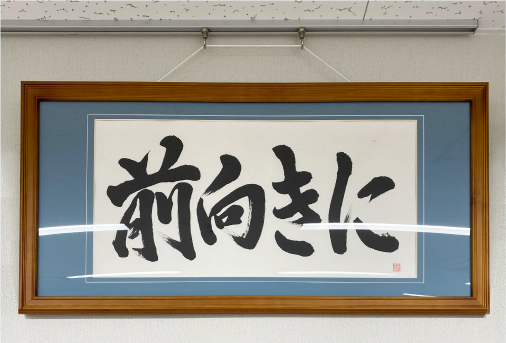 前向きに